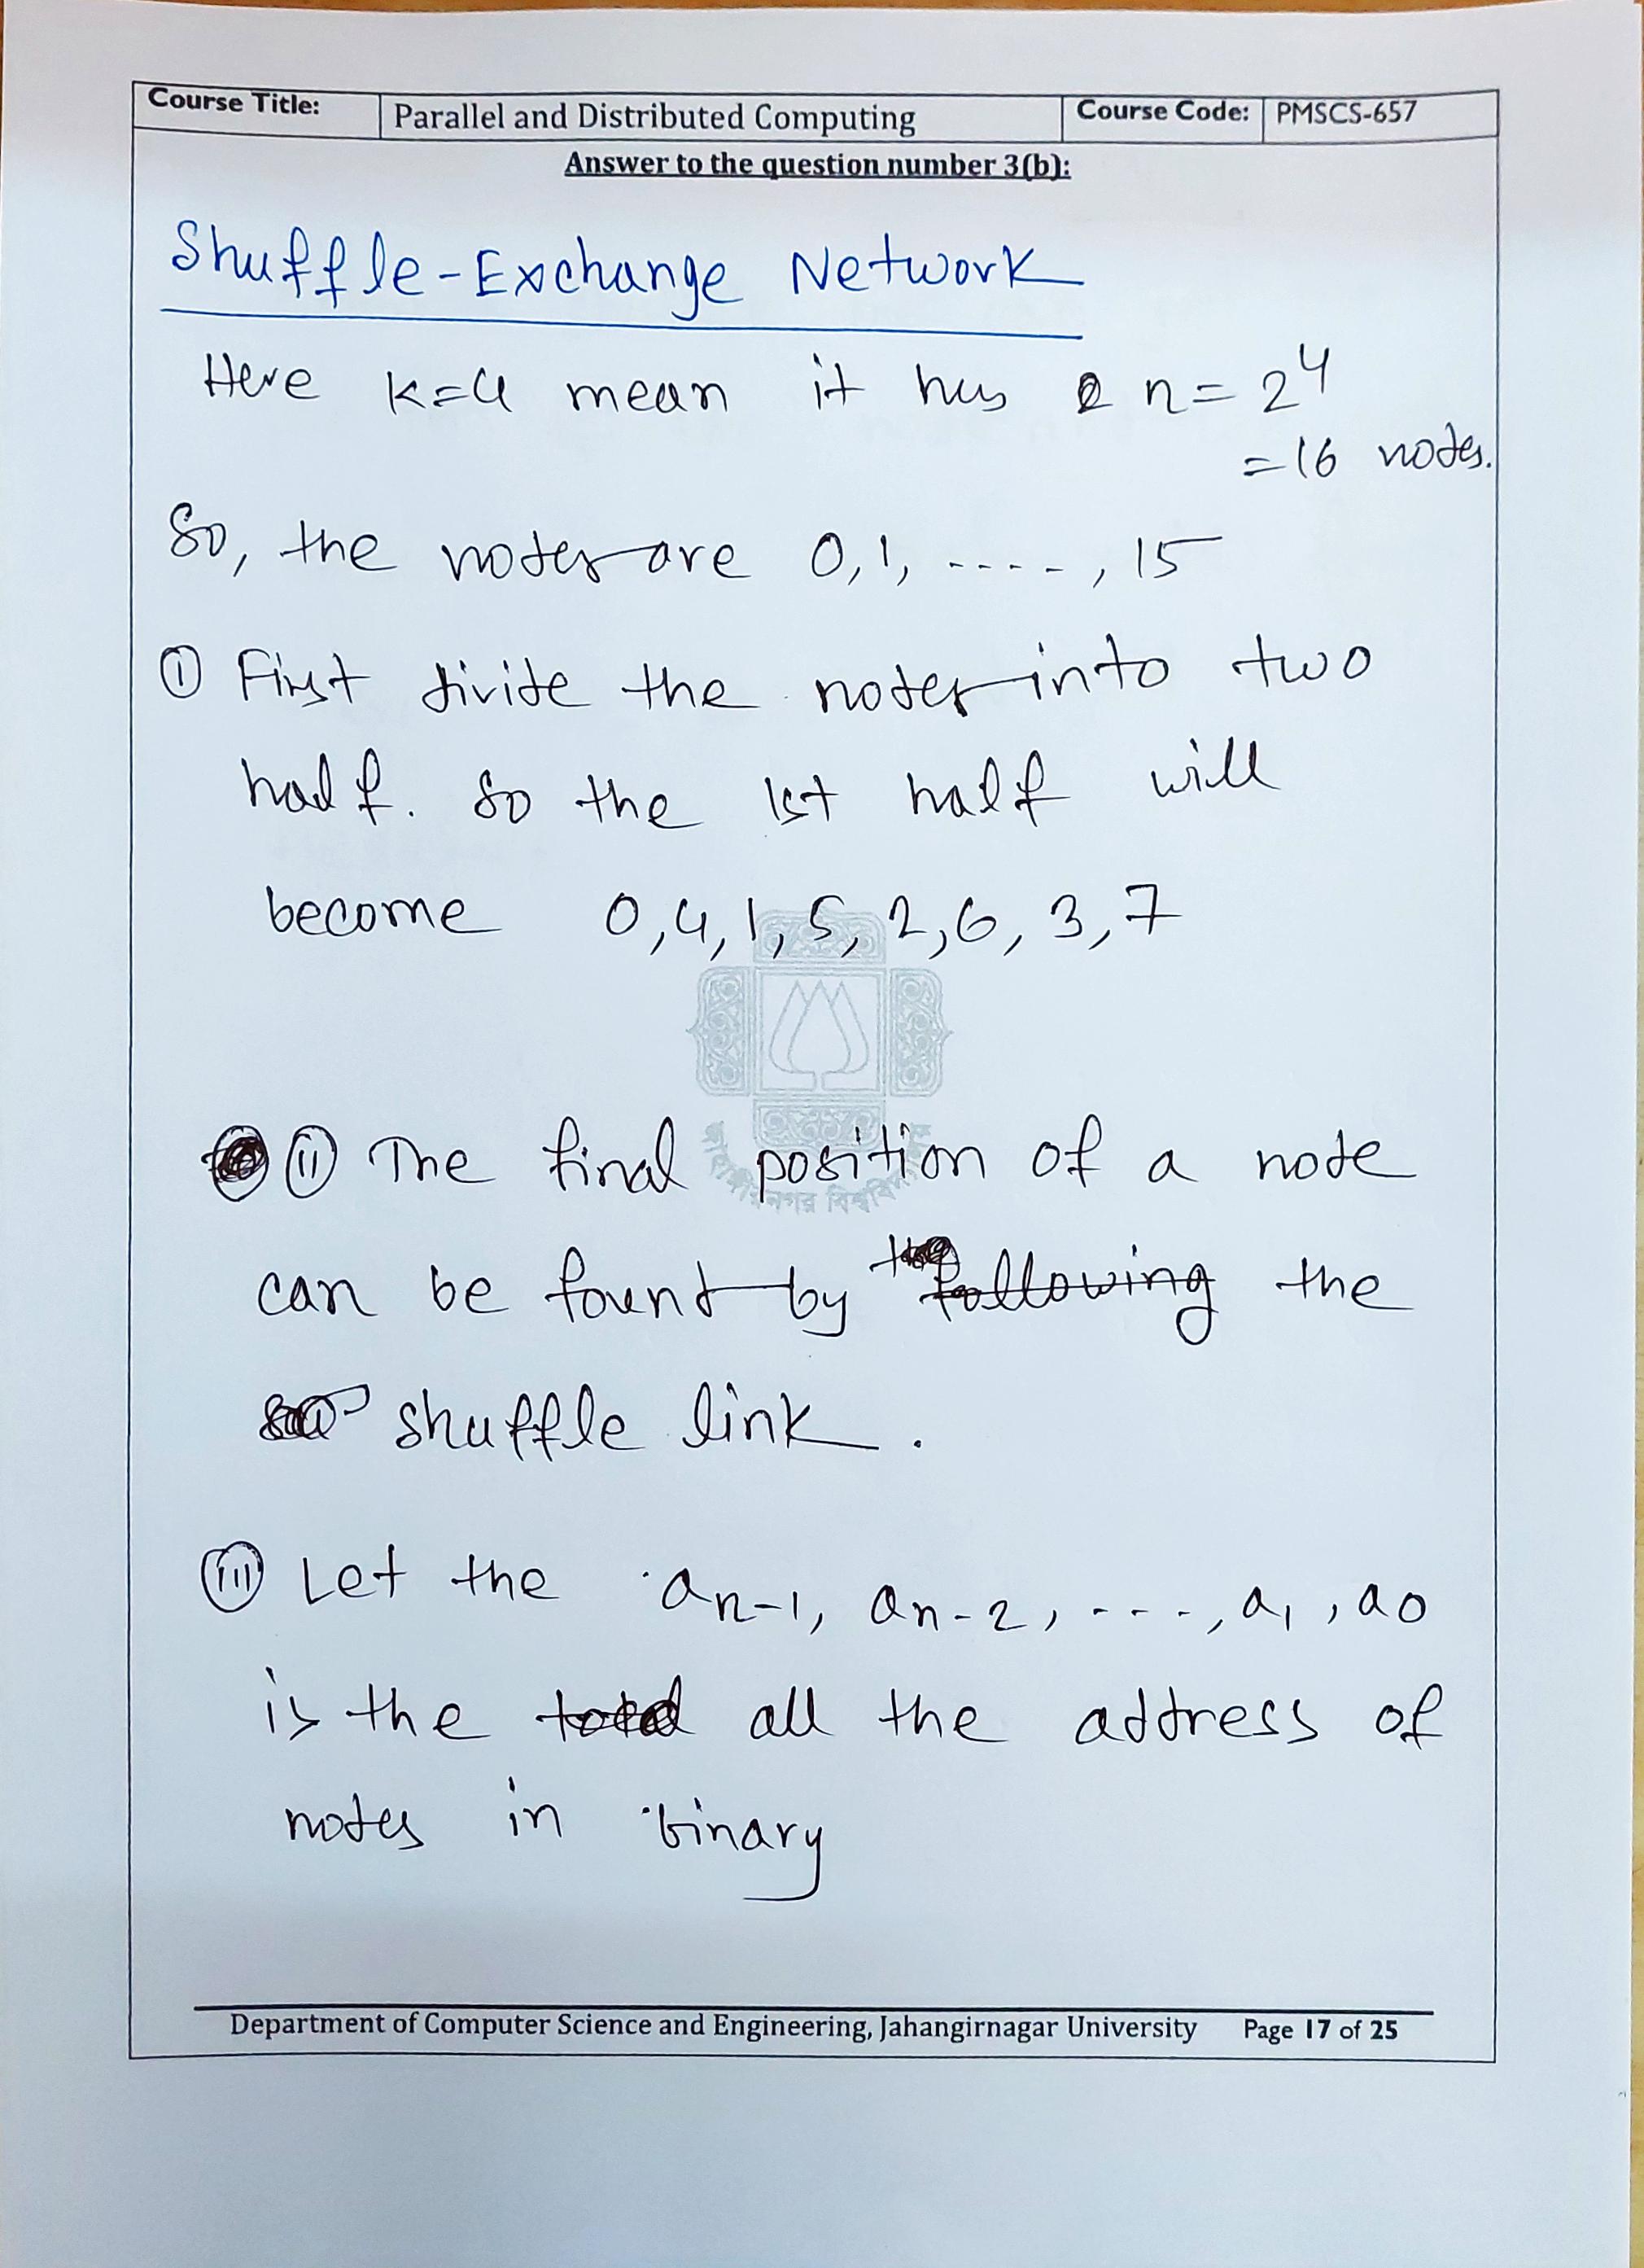 Course Title: Parallel and Distributed Computing Course Code: PMSCS-657
Answer to the question number 3(b):
Shuffle-Exchange Network
Here K=4 mean it has n = 2^4
= 16 nodes.
So, the nodes are 0, 1, ----, 15
(i) First divide the nodes into two
half. So the 1st half will
become 0, 4, 1, 5, 2, 6, 3, 7
(ii) The final position of a node
can be found by following the
shuffle link.
(iii) Let the an-1, an-2, ----, a1, a0
is the total all the address of
nodes in binary
Department of Computer Science and Engineering, Jahangirnagar University Page 17 of 25